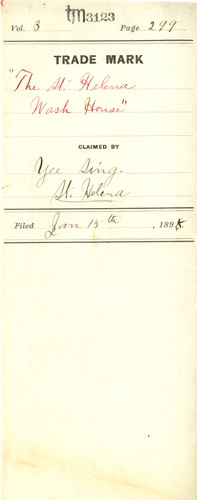 tm3123
Vol. 3 Page 299
TRADE MARK
"The St. Helena
Wash House"
CLAIMED BY
Yee Sing.
St. Helena
Filed Jan 15th, 189